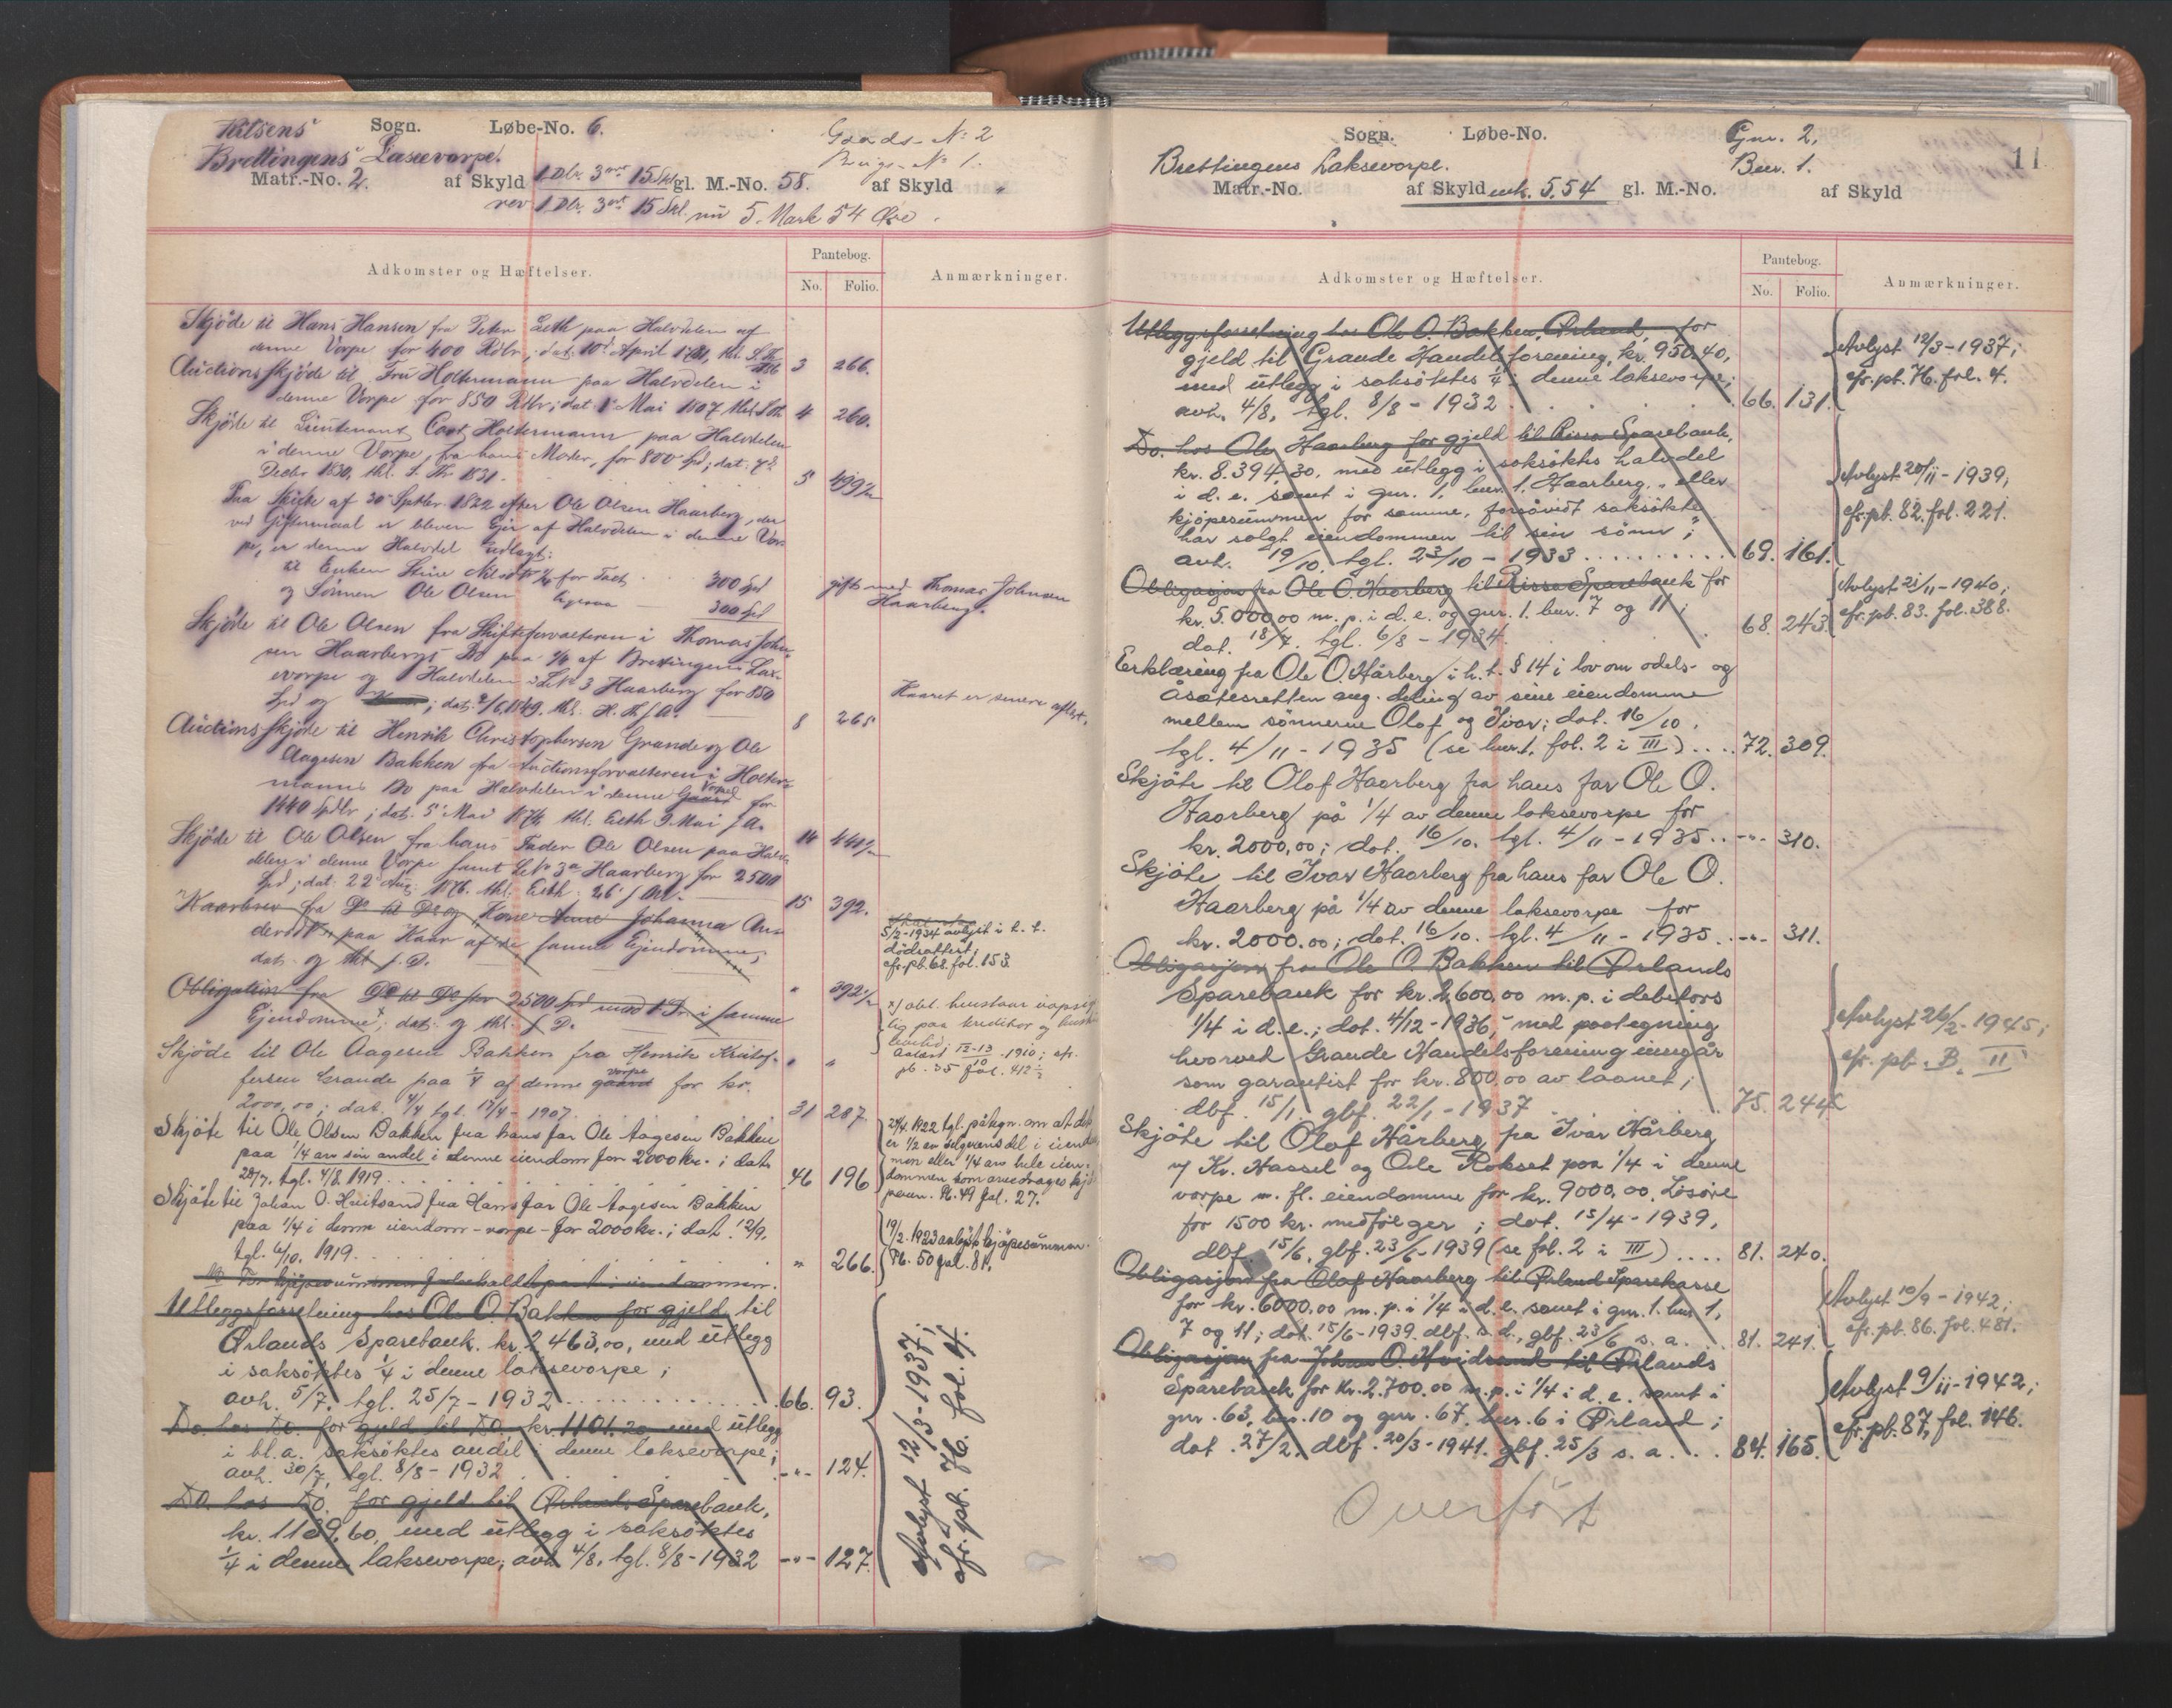 Sogn. Løbe-No. 6. Gaards-No 2
Brettingens Laxevorpe. Brugs-No 1.
Matr.-No. 2. af Skyld 1 Dlr. 3 ort 15 Skl gl. M.-No. 58. af Skyld
rev 1 Dlr. 3 ort 15 Skl. nu 5 Mark 54 Øre.
Adkomster og Hæftelser. Pantebog. No. Folio. Anmærkninger.
Skjöde til Hans Hansen fra Peter Leth paa Halvdelen af
denne Vorpe for 400 Rdlr; dat. 10 April 3 266.
Auctionsskjöde til Fru Holtermann paa Halvdelen i
denne Vorpe for 850 Rdlr; dat 1 Mai 1807 4 260.
Skjöde til Lieutenant Carl Holtermann paa Halvdelen
i denne Vorpe, fra hans Moder, for 800 Spd; dat. 7de
Decbr 1830, thl. 1831. 5 499
Paa Skifte af 30 Septbr 1822 efter Ole Olsen Haarberg, der
ved Giftermaal er bleven Ejer af Halvdelen i denne Vor-
pe, er denne Halvdel udlagt:
til Enken Stine for 300 Spd gift med Thomas Johnsen
og Sönnen Ole Olsen 300 Spd Haarberg.
Skjöde til Ole Olsen fra Skifteforvalteren i Thomas John-
sen Haarbergs Bo paa af Brettingens Lax-
evorpe og Halvdelen i 3 Haarberg for 850
Spd og ; dat. 1849. thl. Kaaret er senere aflyst.
8 265
Auctionsskjöde til Henrik Christophersen Grande og Ole
Aagesen Bakken fra Auctionsforvalteren i Holter-
manns Bo paa Halvdelen i denne Gaard Vorpe for
1440 Spdlr; dat. 5 Mai 1874 thl. 9 Mai s. A. 14 441
Skjöde til Ole Olsen fra hans Fader Ole Olsen paa Halv-
delen i denne Vorpe samt 3a Haarberg for 2500
Spd; dat: 22 Aug. 1876. thl. 26 s. M. 15 392.
Kaarbrev fra Do til Do og Kone Anne Johanna An-
paa Kaar af de samme Ejendomme,
dat. og thl s. D. " 392
5/2-1934 avlyst i h. t.
dödsattest;
cfr. pb. 68. fol. 153.
Obligation fra Do til Do for 2500 Spd med 1 Pr. i samme
Ejendomme; dat. og thl. s. D. " "
12-13/10 - 1910; cfr.
pb. 35 fol. 412
Skjöde til Ole Aagesen Bakken fra Henrik Kristof-
fersen Grande paa 1/4 af denne gaard vorpe for kr.
2000,00; dat. 4/4 tgl. 17/4 - 1907. 31 207
Skjöte til Ole Olsen Bakken fra hans far Ole Aagesen Bakken
paa 1/4 av sin andel i denne eiendom for 2000 kr.; dat.
28/7. tgl. 4/8. 1919. 46 196
24/4. 1922 tgl. påtegn. om at det
er 1/2 av selgerens del i eien-
men eller 1/4 av hele eien-
dommen som overdrages
Pb. 49 fol. 27.
Skjöte til Johan O. Hvitsand fra Hans far Ole Aagesen Bakken
paa 1/4 i denne eiendom - vorpe - for 2000 kr.; dat. 12/9.
tgl. 6/10. 1919. " 266.
19/2. 1923 avlyst kjöpesummen.
Pb. 50 fol. 81.
For kjöpesummen forbeholdt pant i eiendommen.
Utleggsforretning hos Ole O. Bakken for gjeld til
Ørlands Sparebank. kr. 2463,00, med utlegg
i saksöktes 1/4 i denne laksevorpe;
avh. 5/7. tgl. 25/7 - 1932 66. 93.
Do. hos Do. for gjeld til Do., kr. 1101.20 med utlegg
i bl. a. saksöktes andel i denne laksevorpe;
avh. 30/7, tgl. 8/8 - 1932 -"- 124.
Do. hos Do. for gjeld til Ørlands Sparebank,
kr. 1189,60, med utlegg i saksöktes
1/4 i denne laksevorpe; avh. 4/8, tgl. 8/8 - 1932 -"- 127.
Avlyst 12/3 - 1937;
cfr. pb. 76. fol. 4.
Sogn. Løbe-No. Gnr. 2. 11
Brettingens Laksevorpe. Bnr. 1.
Matr.-No. af Skyld mk. 5,54 gl. M.-No. af Skyld
Adkomster og Hæftelser. Pantebog. No. Folio. Anmærkninger.
Utleggsforretning hos Ole O. Bakken, Ørland, for
gjeld til Grande Handelsforening, kr. 950,40,
med utlegg i saksöktes 1/4 i denne laksevorpe;
avh. 4/8, tgl. 8/8 - 1932 66. 131.
Avlyst 12/3 - 1937;
cfr. pb. 76. fol. 4.
Do. hos Ole Haarberg for gjeld til Rissa Sparebank,
kr. 8.394,30. med utlegg i saksöktes halvdel
i d. e. samt i gnr. 1, bnr. 1, Haarberg, eller
kjöpesummen for samme, forsåvidt saksökte
har solgt eiendommen til sin sönn;
avh. 19/10. tgl. 23/10 - 1933 69. 161.
Avlyst 20/11 - 1939,
cfr. pb. 82. fol. 221.
Obligasjon fra Ole O. Haarberg til Rissa Sparebank for
kr. 5.000,00 m. p. i d. e. og gnr. 1. bnr. 7 og 11;
dat. 18/7. tgl. 6/8 - 1934. 68. 243.
Avlyst 21/11 - 1940;
cfr. pb. 83. fol. 388.
Erklæring fra Ole O. Hårberg i h. t. § 14 i lov om odels- og
åsætesretten ang. deling av sine eiendomme
mellem sönnerne Olaf og Ivar; dat. 16/10.
tgl. 4/11 - 1935 (se bnr. 1, fol. 2 i III) 72. 309.
Skjöte til Olof Haarberg fra hans far Ole O.
Haarberg på 1/4 av denne laksevorpe for
kr. 2000,00; dat. 16/10. tgl. 4/11 - 1935 -"- 310.
Skjöte til Ivar Haarberg fra hans far Ole O.
Haarberg på 1/4 av denne laksevorpe for
kr. 2000.00; dat. 16/10. tgl. 4/11 - 1935 -"- 311.
Obligasjon fra Ole O. Bakken til Ørlands
Sparebank for kr. 2,600,00 m. p. i debitors
1/4 i d. e.; dat. 4/12 - 1936, med paategning
hvorved Grande Handelsforening inngår
som garantist for kr. 800,00 av laanet;
dbf. 15/1. gbf. 22/1 - 1937 75. 244
Avlyst 26/2 - 1945;
cfr. pb. B. II
Skjöte til Olof Hårberg fra Ivar Hårberg
v/ Kr. Hassel og Ole Rokset paa 1/4 i denne
vorpe m. fl. eiendomme for kr. 9000,00. Lösöre
for 1500 kr. medfölger; dat. 15/4 - 1939,
dbf. 15/6, gbf. 23/6 - 1939 (se fol. 2 i III) 81. 240.
Obligasjon fra Olaf Haarberg til Ørland Sparekasse
for kr. 6000,00 m. p. i 1/4 i d. e. samt i gnr. 1. bnr. 1,
7 og 11; dat. 15/6 - 1939. dbf. s. d., gbf. 23/6 s. a. 81. 241.
Avlyst 10/9 - 1942;
cfr. pb. 86. fol. 481.
Obligasjon fra Johan O. Hvidsand til Ørlands
Sparebank for kr. 2.700.00 m. p. i 1/4 i d. e. samt i
gnr. 63, bnr. 10 og gnr. 67. bnr. 6 i Ørland;
dat. 27/2. dbf. 20/3 - 1941. gbf. 25/3 s. a. 84. 165.
Avlyst 9/11 - 1942;
cfr. pb. 87, fol. 146.
Overført